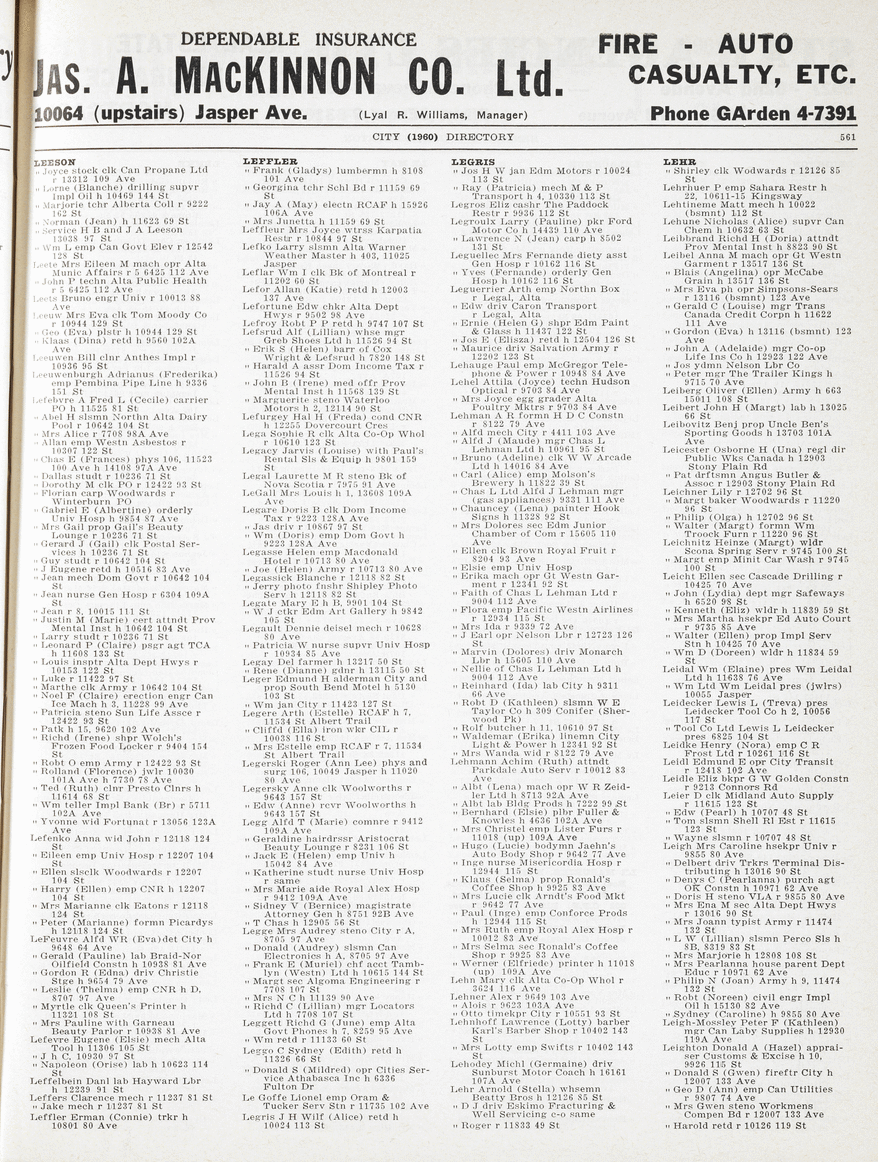 DEPENDABLE INSURANCE
JAS. A. MACKINNON CO. Ltd.
10064 (upstairs) Jasper Ave.
(Lyal R. Williams, Manager)
FIRE - AUTO
CASUALTY, ETC.
Phone GArden 4-7391
CITY (1960) DIRECTORY
561
LEESON
" Joyce stock clk Can Propane Ltd
r 13312 109 Ave
" Lorne (Blanche) drilling supvr
Impl Oil h 10469 144 St
" Marjorie tchr Alberta Coll r 9222
162 St
" Norman (Jean) h 11623 69 St
" Service H B and J A Leeson
13038 97 St
" Wm L emp Can Govt Elev r 12542
128 St
Leete Mrs Eileen M mach opr Alta
Munic Affairs r 5 6425 112 Ave
" John P techn Alta Public Health
r 5 6425 112 Ave
Leets Bruno engr Univ r 10013 88
Ave
Leeuw Mrs Eva clk Tom Moody Co
r 10944 129 St
" Geo (Eva) plstr h 10944 129 St
" Klaas (Dina) retd h 9560 102A
Ave
Leeuwen Bill clnr Anthes Impl r
10936 95 St
Leeuwenburgh Adrianus (Frederika)
emp Pembina Pipe Line h 9336
151 St
Lefebvre A Fred L (Cecile) carrier
PO h 11525 81 St
" Abel H slsmn Northn Alta Dairy
Pool r 10642 104 St
" Mrs Alice r 7708 98A Ave
" Allan emp Westn Asbestos r
10307 122 St
" Chas E (Frances) phys 106, 11523
100 Ave h 14108 97A Ave
" Dallas studt r 10236 71 St
" Dorothy M clk PO r 12422 93 St
" Florian carp Woodwards r
Winterburn PO
" Gabriel E (Albertine) orderly
Univ Hosp h 9854 87 Ave
" Mrs Gail prop Gail's Beauty
Lounge r 10236 71 St
" Gerard J (Gail) clk Postal Ser-
vices h 10236 71 St
" Guy studt r 10642 104 St
" J Eugene retd h 10516 83 Ave
" Jean mech Dom Govt r 10642 104
St
" Jean nurse Gen Hosp r 6304 109A
St
" Jean r 8, 10015 111 St
" Justin M (Marie) cert attndt Prov
Mental Inst h 10642 104 St
" Larry studt r 10236 71 St
" Leonard P (Claire) psgr agt TCA
h 11608 133 St
" Louis insptr Alta Dept Hwys r
10153 122 St
" Luke r 11422 97 St
" Marthe clk Army r 10642 104 St
" Noel F (Claire) erection engr Can
Ice Mach h 3, 11228 99 Ave
" Patricia steno Sun Life Assce r
12422 93 St
" Patk h 15, 9620 102 Ave
" Richd (Irene) shpr Wolch's
Frozen Food Locker r 9404 154
St
" Robt O emp Army r 12422 93 St
" Rolland (Florence) jwlr 10030
101A Ave h 7730 78 Ave
" Ted (Ruth) clnr Presto Clnrs h
11614 68 St
" Wm teller Impl Bank (Br) r 5711
102A Ave
" Yvonne wid Fortunat r 13056 123A
Ave
Lefenko Anna wid John r 12118 124
St
" Eileen emp Univ Hosp r 12207 104
St
" Ellen slsclk Woodwards r 12207
104 St
" Harry (Ellen) emp CNR h 12207
104 St
" Mrs Marianne clk Eatons r 12118
124 St
" Peter (Marianne) formn Picardys
h 12118 124 St
LeFeuvre Alfd WR (Eva)det City h
9648 64 Ave
" Gerald (Pauline) lab Braid-Nor
Oilfield Constn h 10938 81 Ave
" Gordon R (Edna) driv Christie
Stge h 9654 79 Ave
" Leslie (Thelma) emp CNR h D,
8707 97 Ave
" Myrtle clk Queen's Printer h
11321 108 St
" Mrs Pauline with Garneau
Beauty Parlor r 10938 81 Ave
Lefevre Eugene (Elsie) mech Alta
Tool h 11306 105 St
" J h C, 10930 97 St
" Napoleon (Orise) lab h 10623 114
St
Leffelbein Danl lab Hayward Lbr
h 12239 91 St
Leffers Clarence mech r 11237 81 St
" Jake mech r 11237 81 St
Leffler Erman (Connie) trkr h
10801 80 Ave
LEFFLER
" Frank (Gladys) lumbermn h 8108
101 Ave
" Georgina tchr Schl Bd r 11159 69
St
" Jay A (May) electn RCAF h 15926
106A Ave
" Mrs Junetta h 11159 69 St
Leffleur Mrs Joyce wtrss Karpatia
Restr r 10844 97 St
Lefko Larry slsmn Alta Warner
Weather Master h 403, 11025
Jasper
Leflar Wm I clk Bk of Montreal r
11202 60 St
Lefor Allan (Katie) retd h 12003
137 Ave
Lefortune Edw chkr Alta Dept
Hwys r 9502 98 Ave
Lefroy Robt P P retd h 9747 107 St
Lefsrud Alf (Lillian) whse mgr
Greb Shoes Ltd h 11526 94 St
" Erik S (Helen) barr of Cox
Wright & Lefsrud h 7820 148 St
" Harald A assr Dom Income Tax r
11526 94 St
" John B (Irene) med offr Prov
Mental Inst h 11568 139 St
" Marguerite steno Waterloo
Motors h 2, 12114 90 St
Lefurgey Hal H (Freda) cond CNR
h 12255 Dovercourt Cres
Lega Sophie R clk Alta Co-Op Whol
r 10610 123 St
Legacy Jarvis (Louise) with Paul's
Rental Sls & Equip h 9801 159
St
Legal Laurette M R steno Bk of
Nova Scotia r 7975 91 Ave
LeGall Mrs Louis h 1, 13608 109A
Ave
Legare Doris B clk Dom Income
Tax r 9223 128A Ave
" Jas driv r 10867 97 St
" Wm (Doris) emp Dom Govt h
9223 128A Ave
Legasse Helen emp Macdonald
Hotel r 10713 80 Ave
" Joe (Helen) Army r 10713 80 Ave
Legassick Blanche r 12118 82 St
" Jerry photo fnshr Shipley Photo
Serv h 12118 82 St
Legate Mary E h B, 9901 104 St
" W J ctkr Edm Art Gallery h 9842
105 St
Legault Dennis deisel mech r 10628
80 Ave
" Patricia W nurse supvr Univ Hosp
r 10934 85 Ave
Legay Del farmer h 13217 50 St
" Rene (Dianne) gdnr h 13110 50 St
Leger Edmund H alderman City and
prop South Bend Motel h 5130
103 St
" Wm jan City r 11423 127 St
Legere Arth (Estelle) RCAF h 7,
11534 St Albert Trail
" Cliffd (Ella) iron wkr CIL r
10038 116 St
" Mrs Estelle emp RCAF r 7, 11534
St Albert Trail
Legerski Roger (Ann Lee) phys and
surg 106, 10049 Jasper h 11020
80 Ave
Legersky Anne clk Woolworths r
9643 157 St
" Edw (Anne) recvr Woolworths h
9643 157 St
Legg Alfd T (Marie) comnre r 9412
109A Ave
" Geraldine hairdrssr Aristocrat
Beauty Lounge r 8231 106 St
" Jack E (Helen) emp Univ h
15042 84 Ave
" Katherine studt nurse Univ Hosp
r same
" Mrs Marie aide Royal Alex Hosp
r 9412 109A Ave
" Sidney V (Bernice) magistrate
Attorney Gen h 8751 92B Ave
" T Chas h 12905 56 St
Legge Mrs Audrey steno City r A,
8705 97 Ave
" Donald (Audrey) slsmn Can
Electronics h A, 8705 97 Ave
" Frank E (Muriel) chf acct Tamb-
lyn (Westn) Ltd h 10615 144 St
" Margt sec Algoma Engineering r
7708 107 St
" Mrs N C h 11139 90 Ave
" Richd C (Lillian) mgr Locators
Ltd h 7708 107 St
Leggett Richd G (June) emp Alta
Govt Phones h 7, 8259 95 Ave
" Wm retd r 11133 60 St
Leggo C Sydney (Edith) retd h
11326 66 St
" Donald S (Mildred) opr Cities Ser-
vice Athabasca Inc h 6336
Fulton Dr
Le Goffe Lionel emp Oram &
Tucker Serv Stn r 11735 102 Ave
Legris J H Wilf (Alice) retd h
10024 113 St
LEGRIS
" Jos H W jan Edm Motors r 10024
113 St
" Ray (Patricia) mech M & P
Transport h 4, 10330 113 St
Legros Eliz cashr The Paddock
Restr r 9936 112 St
Legroulx Larry (Pauline) pkr Ford
Motor Co h 14439 110 Ave
" Lawrence N (Jean) carp h 8502
131 St
Leguellec Mrs Fernande diety asst
Gen Hosp r 10162 116 St
" Yves (Fernande) orderly Gen
Hosp h 10162 116 St
Leguerrier Arth emp Northn Box
r Legal, Alta
" Edw driv Caron Transport
r Legal, Alta
" Ernie (Helen G) shpr Edm Paint
& Glass h 11437 122 St
" Jos E (Elisza) retd h 12504 126 St
" Maurice driv Salvation Army r
12202 123 St
Lehauge Paul emp McGregor Tele-
phone & Power r 10948 84 Ave
Lehel Attila (Joyce) techn Hudson
Optical r 9703 84 Ave
" Mrs Joyce egg grader Alta
Poultry Mktrs r 9703 84 Ave
Lehman A R formn H D C Constn
r 8122 79 Ave
" Alfd mech City r 4411 103 Ave
" Alfd J (Maude) mgr Chas L
Lehman Ltd h 10961 95 St
" Bruno (Adeline) clk W W Arcade
Ltd h 14016 84 Ave
" Carl (Alice) emp Molson's
Brewery h 11822 39 St
" Chas L Ltd Alfd J Lehman mgr
(gas appliances) 9331 111 Ave
" Chauncey (Lena) painter Hook
Signs h 11328 92 St
" Mrs Dolores sec Edm Junior
Chamber of Com r 15605 110
Ave
" Ellen clk Brown Royal Fruit r
8204 93 Ave
" Elsie emp Univ Hosp
" Erika mach opr Gt Westn Gar-
ment r 12341 92 St
" Faith of Chas L Lehman Ltd r
9004 112 Ave
" Flora emp Pacific Westn Airlines
r 12934 115 St
" Mrs Ida r 9339 72 Ave
" J Earl opr Nelson Lbr r 12723 126
St
" Marvin (Dolores) driv Monarch
Lbr h 15605 110 Ave
" Nellie of Chas L Lehman Ltd h
9004 112 Ave
" Reinhard (Ida) lab City h 9311
66 Ave
" Robt D (Kathleen) slsmn W E
Taylor Co h 309 Conifer (Sher-
wood Pk)
" Rolf butcher h 11, 10610 97 St
" Waldemar (Erika) linemn City
Light & Power h 12341 92 St
" Mrs Wanda wid r 8122 79 Ave
Lehmann Achim (Ruth) attndt
Parkdale Auto Serv r 10012 83
Ave
" Albt (Lena) mach opr W R Zeid-
ler Ltd h 8713 92A Ave
" Albt lab Bldg Prods h 7222 99 St
" Bernhard (Elsie) plbr Fuller &
Knowles h 4636 102A Ave
" Mrs Christel emp Lister Furs r
11018 (up) 109A Ave
" Hugo (Lucie) bodymn Jaehn's
Auto Body Shop r 9642 77 Ave
" Inge nurse Misericordia Hosp r
12944 115 St
" Klaus (Selma) prop Ronald's
Coffee Shop h 9925 83 Ave
" Mrs Lucie clk Arndt's Food Mkt
r 9642 77 Ave
" Paul (Inge) emp Conforce Prods
h 12944 115 St
" Mrs Ruth emp Royal Alex Hosp r
10012 83 Ave
" Mrs Selma sec Ronald's Coffee
Shop r 9925 83 Ave
" Werner (Elfriede) printer h 11018
(up) 109A Ave
Lehn Mary clk Alta Co-Op Whol r
3624 116 Ave
Lehner Alex r 9649 103 Ave
" Alois r 9623 103A Ave
" Otto timekpr City r 10551 93 St
Lehnhoff Lawrence (Lotty) barber
Karl's Barber Shop r 10402 143
St
" Mrs Lotty emp Swifts r 10402 143
St
Lehodey Michl (Germaine) driv
Sunburst Motor Coach h 16161
107A Ave
Lehr Arnold (Stella) whsemn
Beatty Bros h 12126 85 St
" D J driv Eskimo Fracturing &
Well Servicing c-o same
" Roger r 11833 49 St
LEHR
" Shirley clk Wodwards r 12126 85
St
Lehrhuer P emp Sahara Restr h
22, 10611-15 Kingsway
Lehtineme Matt mech h 10022
(bsmnt) 112 St
Lehune Nicholas (Alice) supvr Can
Chem h 10632 63 St
Leibbrand Richd H (Doria) attndt
Prov Mental Inst h 8823 90 St
Leibel Anna M mach opr Gt Westn
Garment r 13517 136 St
" Blais (Angelina) opr McCabe
Grain h 13517 136 St
" Mrs Eva ph opr Simpsons-Sears
r 13116 (bsmnt) 123 Ave
" Gerald C (Louise) mgr Trans
Canada Credit Corpn h 11622
111 Ave
" Gordon (Eva) h 13116 (bsmnt) 123
Ave
" John A (Adelaide) mgr Co-op
Life Ins Co h 12923 122 Ave
" Jos ydmn Nelson Lbr Co
" Peter mgr The Trailer Kings h
9715 70 Ave
Leiberg Oliver (Ellen) Army h 663
15011 108 St
Leibert John H (Margt) lab h 13025
66 St
Leibovitz Benj prop Uncle Ben's
Sporting Goods h 13703 101A
Ave
Leicester Osborne H (Una) regl dir
Public Wks Canada h 12903
Stony Plain Rd
" Pat drftsmn Angus Butler &
Assoc r 12903 Stony Plain Rd
Leichner Lily r 12702 96 St
" Margt baker Woodwards r 11220
96 St
" Philip (Olga) h 12702 96 St
" Walter (Margt) formn Wm
Troock Furn r 11220 96 St
Leichnitz Heinze (Margt) wldr
Scona Spring Serv r 9745 100 St
" Margt emp Minit Car Wash r 9745
100 St
Leicht Ellen sec Cascade Drilling r
10425 70 Ave
" John (Lydia) dept mgr Safeways
h 6520 98 St
" Kenneth (Eliz) wldr h 11839 59 St
" Mrs Martha hsekpr Ed Auto Court
r 9735 85 Ave
" Walter (Ellen) prop Impl Serv
Stn h 10425 70 Ave
" Wm D (Doreen) wldr h 11834 59
St
Leidal Wm (Elaine) pres Wm Leidal
Ltd h 11638 76 Ave
" Wm Ltd Wm Leidal pres (jwlrs)
10055 Jasper
Leidecker Lewis L (Treva) pres
Leidecker Tool Co h 2, 10056
117 St
" Tool Co Ltd Lewis L Leidecker
pres 6825 104 St
Leidke Henry (Nora) emp C R
Frost Ltd r 10261 116 St
Leidl Edmund E opr City Transit
r 12418 102 Ave
Leidle Eliz bkpr G W Golden Constn
r 9213 Connors Rd
Leier D clk Midland Auto Supply
r 11615 123 St
" Edw (Pearl) h 10707 48 St
" Tom slsmn Shell Rl Est r 11615
123 St
" Wayne slsmn r 10707 48 St
Leigh Mrs Caroline hsekpr Univ r
9855 80 Ave
" Delbert driv Trkrs Terminal Dis-
tributing h 13016 90 St
" Denys C (Pearlanna) purch agt
OK Constn h 10971 62 Ave
" Doris H steno VLA r 9855 80 Ave
" Mrs Ena M sec Alta Dept Hwys
r 13016 90 St
" Mrs Joann typist Army r 11474
132 St
" L W (Lillian) slsmn Perco Sls h
8B, 8319 83 St
" Mrs Marjorie h 12808 108 St
" Mrs Pearlanna house parent Dept
Educ r 10971 62 Ave
" Philip N (Joan) Army h 9, 11474
132 St
" Robt (Noreen) civil engr Impl
Oil h 15130 82 Ave
" Sydney (Caroline) h 9855 80 Ave
Leigh-Mossley Peter F (Kathleen)
mgr Can Laby Supplies h 12930
119A Ave
Leighton Donald A (Hazel) apprai-
ser Customs & Excise h 10,
9926 115 St
" Donald S (Gwen) fireftr City h
12007 133 Ave
" Geo D (Ann) emp Can Utilities
r 9807 74 Ave
" Mrs Gwen steno Workmens
Compen Bd r 12007 133 Ave
" Harold retd r 10126 119 St